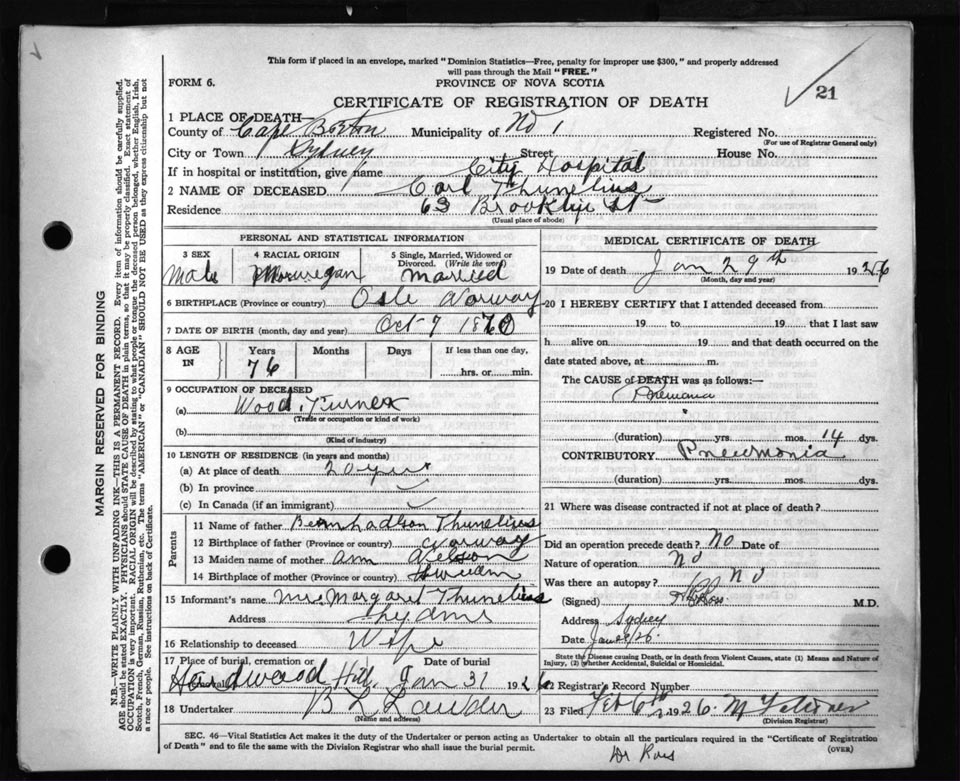 This form if placed in an envelope, marked "Dominion Statistics—Free, penalty for improper use $300," and properly addressed
will pass through the Mail "FREE."
FORM 6.
PROVINCE OF NOVA SCOTIA
21
CERTIFICATE OF REGISTRATION OF DEATH
1 PLACE OF DEATH—
County of Cape Breton Municipality of No 1 Registered No.
(For use of Registrar General only)
City or Town Sydney Street House No.
If in hospital or institution, give name City Hospital
2 NAME OF DECEASED Carl Thunelius
Residence 63 Brooklyn St
(Usual place of abode)
PERSONAL AND STATISTICAL INFORMATION
3 SEX 4 RACIAL ORIGIN 5 Single, Married, Widowed or
Divorced. (Write the word)
Male Norwegan married
6 BIRTHPLACE (Province or country) Osle Norway
7 DATE OF BIRTH (month, day and year) Oct 9
8 AGE IN Years Months Days If less than one day,
76 hrs. or min.
9 OCCUPATION OF DECEASED
(a) Wood Turner
(Trade or occupation or kind of work)
(b)
(Kind of industry)
10 LENGTH OF RESIDENCE (in years and months)
(a) At place of death 20 years
(b) In province
(c) In Canada (if an immigrant)
Parents
11 Name of father Thunelius
12 Birthplace of father (Province or country) Norway
13 Maiden name of mother Ann Nelson
14 Birthplace of mother (Province or country)
15 Informant's name Mrs Margaret Thunelius
Address Sydney
16 Relationship to deceased Wife
17 Place of burial, cremation or Date of burial
Hardwood Hill, Jan 31 1926
18 Undertaker
(Name and address)
MEDICAL CERTIFICATE OF DEATH
19 Date of death Jan 29th 1926
(Month, day and year)
20 I HEREBY CERTIFY that I attended deceased from
19 to 19 that I last saw
h alive on 19 and that death occurred on the
date stated above, at m.
The CAUSE of DEATH was as follows:—
(duration) yrs. mos. 14 dys.
CONTRIBUTORY Pneumonia
(duration) yrs. mos. dys.
21 Where was disease contracted if not at place of death?
Did an operation precede death? No Date of
Nature of operation No
Was there an autopsy? No
(Signed) Ross M.D.
Address Sydney
Date
State the Disease causing Death, or in death from Violent Causes, state (1) Means and Nature of
Injury, (2) whether Accidental, Suicidal or Homicidal.
22 Registrar's Record Number
23 Filed Feb 6th 1926
(Division Registrar)
SEC. 46—Vital Statistics Act makes it the duty of the Undertaker or person acting as Undertaker to obtain all the particulars required in the "Certificate of Registration
of Death" and to file the same with the Division Registrar who shall issue the burial permit.
(OVER)
Dr Ross
MARGIN RESERVED FOR BINDING
N.B.—WRITE PLAINLY WITH UNFADING INK—THIS IS A PERMANENT RECORD. Every item of information should be carefully supplied.
AGE should be stated EXACTLY. PHYSICIANS should STATE CAUSE OF DEATH in plain terms, so that it may be properly classified. Exact statement of
OCCUPATION is very important. RACIAL ORIGIN will be described by stating to what people or tongue the deceased person belonged, whether English, Irish,
Scotch, French, German, Russian, Ruthenian, etc. The terms "AMERICAN" or "CANADIAN" SHOULD NOT BE USED as they express citizenship but not
a race or people. See instructions on back of Certificate.